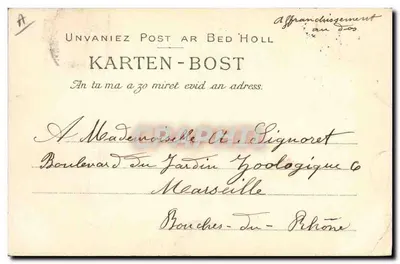 A
Affranchissement
au dos
UNVANIEZ POST AR BED HOLL
KARTEN-BOST
An ta ma a zo miret evid an adress.
A Mademoiselle A. Signoret
Boulevard du Jardin Zoologique 6
Marseille
Bouches-du-Rhône